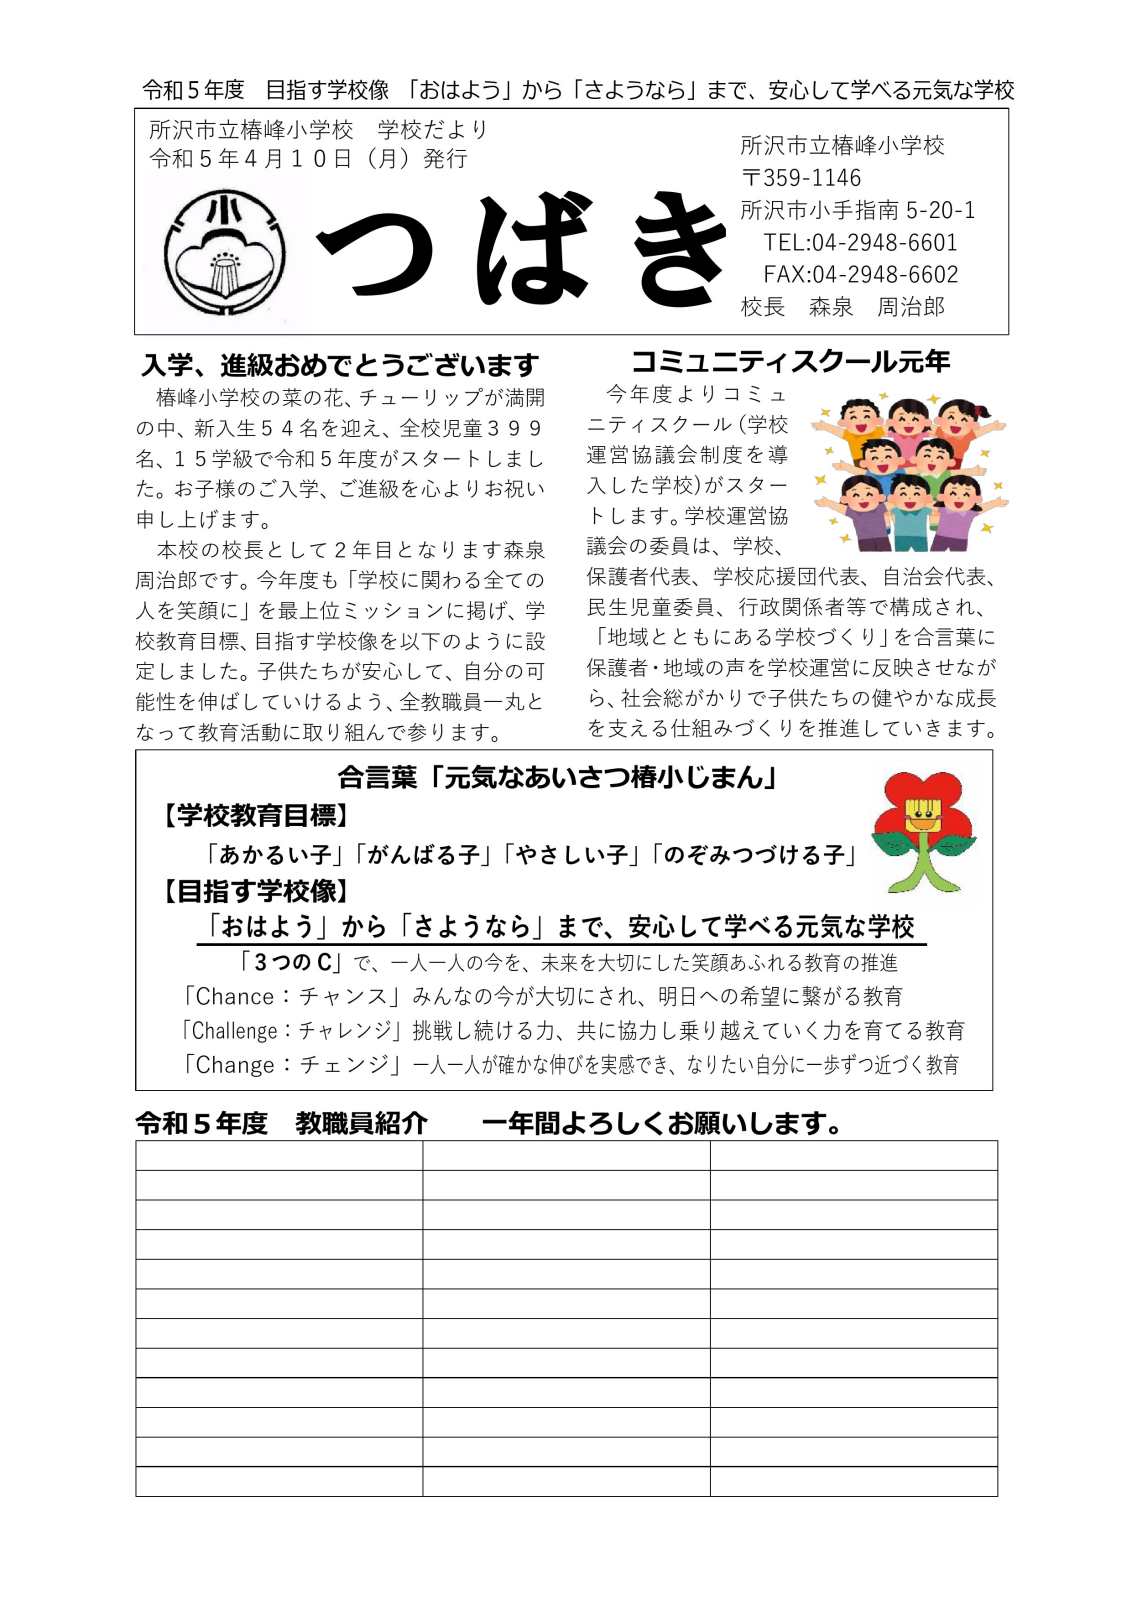 令和５年度　目指す学校像　「おはよう」から「さようなら」まで、安心して学べる元気な学校
所沢市立椿峰小学校　学校だより
令和５年４月１０日（月）発行
小
つばき
所沢市立椿峰小学校
〒359-1146
所沢市小手指南 5-20-1
TEL:04-2948-6601
FAX:04-2948-6602
校長　森泉　周治郎
入学、進級おめでとうございます
　椿峰小学校の菜の花、チューリップが満開
の中、新入生５４名を迎え、全校児童３９９
名、１５学級で令和５年度がスタートしまし
た。お子様のご入学、ご進級を心よりお祝い
申し上げます。
　本校の校長として２年目となります森泉
周治郎です。今年度も「学校に関わる全ての
人を笑顔に」を最上位ミッションに掲げ、学
校教育目標、目指す学校像を以下のように設
定しました。子供たちが安心して、自分の可
能性を伸ばしていけるよう、全教職員一丸と
なって教育活動に取り組んで参ります。
コミュニティスクール元年
　今年度よりコミュ
ニティスクール（学校
運営協議会制度を導
入した学校)がスター
トします。学校運営協
議会の委員は、学校、
保護者代表、学校応援団代表、自治会代表、
民生児童委員、行政関係者等で構成され、
「地域とともにある学校づくり」を合言葉に
保護者・地域の声を学校運営に反映させなが
ら、社会総がかりで子供たちの健やかな成長
を支える仕組みづくりを推進していきます。
合言葉「元気なあいさつ椿小じまん」
【学校教育目標】
「あかるい子」「がんばる子」「やさしい子」「のぞみつづける子」
【目指す学校像】
「おはよう」から「さようなら」まで、安心して学べる元気な学校
「３つのＣ」で、一人一人の今を、未来を大切にした笑顔あふれる教育の推進
「Chance：チャンス」みんなの今が大切にされ、明日への希望に繋がる教育
「Challenge：チャレンジ」挑戦し続ける力、共に協力し乗り越えていく力を育てる教育
「Change：チェンジ」一人一人が確かな伸びを実感でき、なりたい自分に一歩ずつ近づく教育
令和５年度　教職員紹介　　一年間よろしくお願いします。